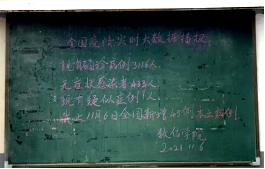 全国疫情实时大数据播报:
现有确诊病例3116人
无症状感染者433人
现有疑似症例1人
截止11月6日全国新增 例本土病例
数信学院
2021.11.6